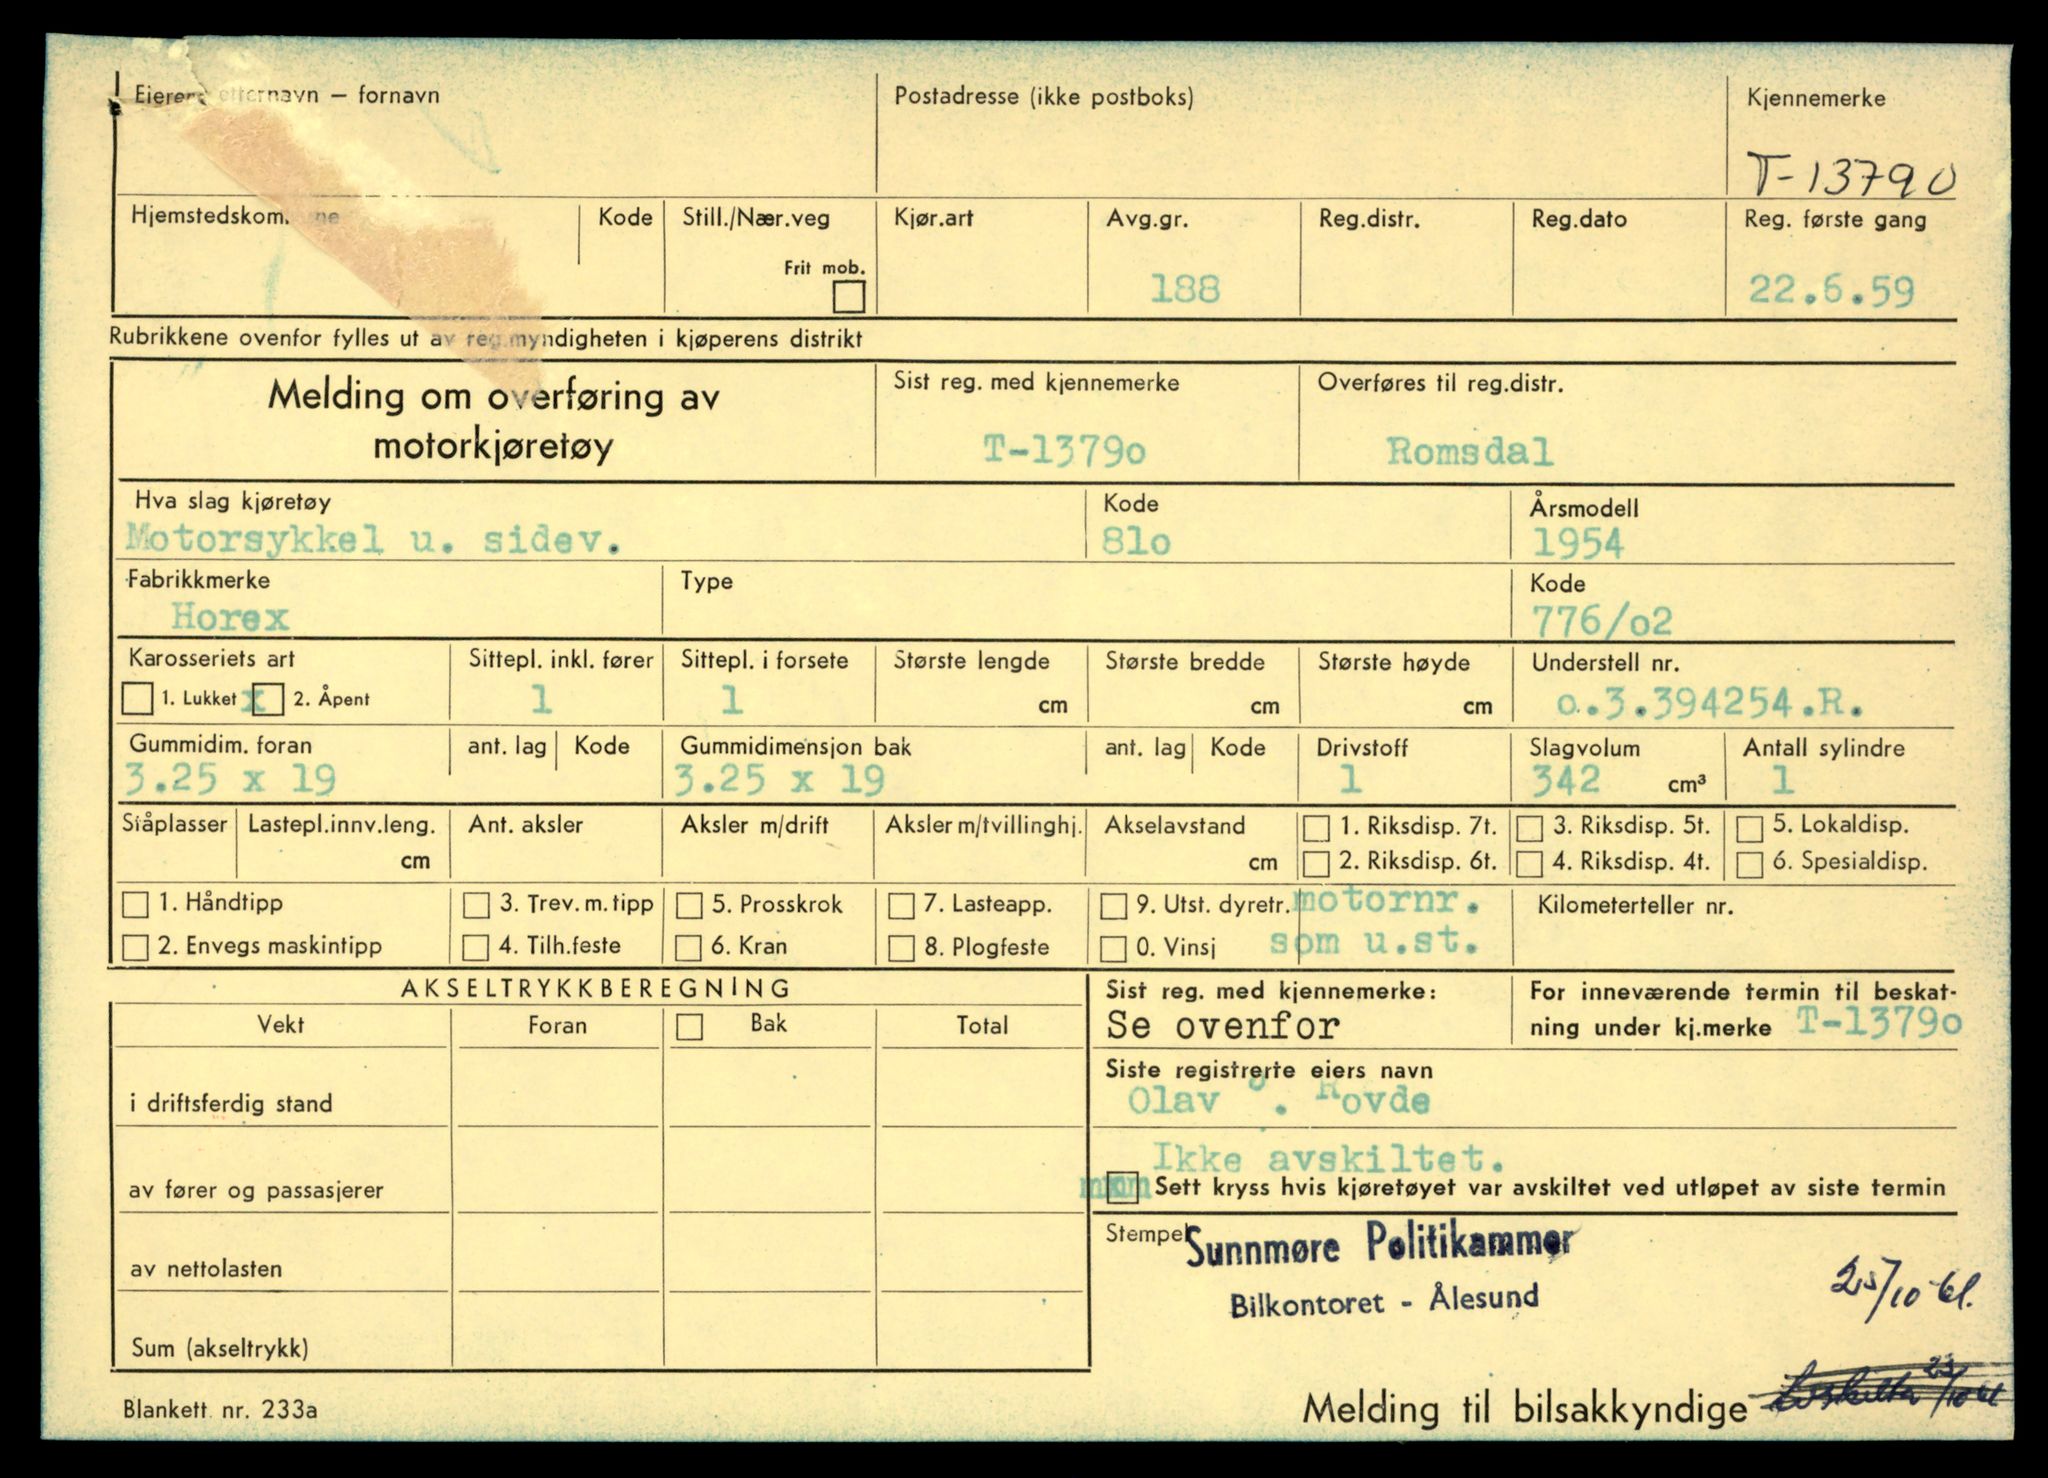 Eierens etternavn – fornavn
Postadresse (ikke postboks)
Kjennemerke
T-13790
Hjemstedskom. ne
Kode
Still./Nær.veg
Frit mob.
Kjør.art
Avg.gr.
188
Reg.distr.
Reg.dato
Reg. første gang
22.6.59
Rubrikkene ovenfor fylles ut av reg.myndigheten i kjøperens distrikt
Melding om overføring av
motorkjøretøy
Sist reg. med kjennemerke
T-1379o
Overføres til reg.distr.
Romsdal
Hva slag kjøretøy
Motorsykkel u. sidev.
Kode
81o
Årsmodell
1954
Fabrikkmerke
Horex
Type
Kode
776/o2
Karosseriets art
1. Lukket x 2. Åpent
Sittepl. inkl. fører
1
Sittepl. i forsete
1
Største lengde
cm
Største bredde
cm
Største høyde
cm
Understell nr.
o.3.394254.R.
Gummidim. foran
3.25 x 19
ant. lag
Kode
Gummidimensjon bak
3.25 x 19
ant. lag
Kode
Drivstoff
1
Slagvolum
342 cm³
Antall sylindre
1
Ståplasser
Lastepl.innv.leng.
cm
Ant. aksler
Aksler m/drift
Aksler m/tvillinghj.
Akselavstand
cm
1. Riksdisp. 7t.
2. Riksdisp. 6t.
3. Riksdisp. 5t.
4. Riksdisp. 4t.
5. Lokaldisp.
6. Spesialdisp.
1. Håndtipp
2. Envegs maskintipp
3. Trev. m. tipp
4. Tilh.feste
5. Prosskrok
6. Kran
7. Lasteapp.
8. Plogfeste
9. Utst. dyretr.
0. Vinsj
motornr.
som u.st.
Kilometerteller nr.
AKSELTRYKKBEREGNING
Vekt
Foran
Bak
Total
i driftsferdig stand
av fører og passasjerer
av nettolasten
Sum (akseltrykk)
Sist reg. med kjennemerke:
Se ovenfor
For inneværende termin til beskat-
ning under kj.merke T-1379o
Siste registrerte eiers navn
Olav O. Rovde
Ikke avskiltet.
Sett kryss hvis kjøretøyet var avskiltet ved utløpet av siste termin
Stempel
Sunnmøre Politikammer
Bilkontoret - Ålesund
25/10-61.
Blankett nr. 233a
Melding til bilsakkyndige